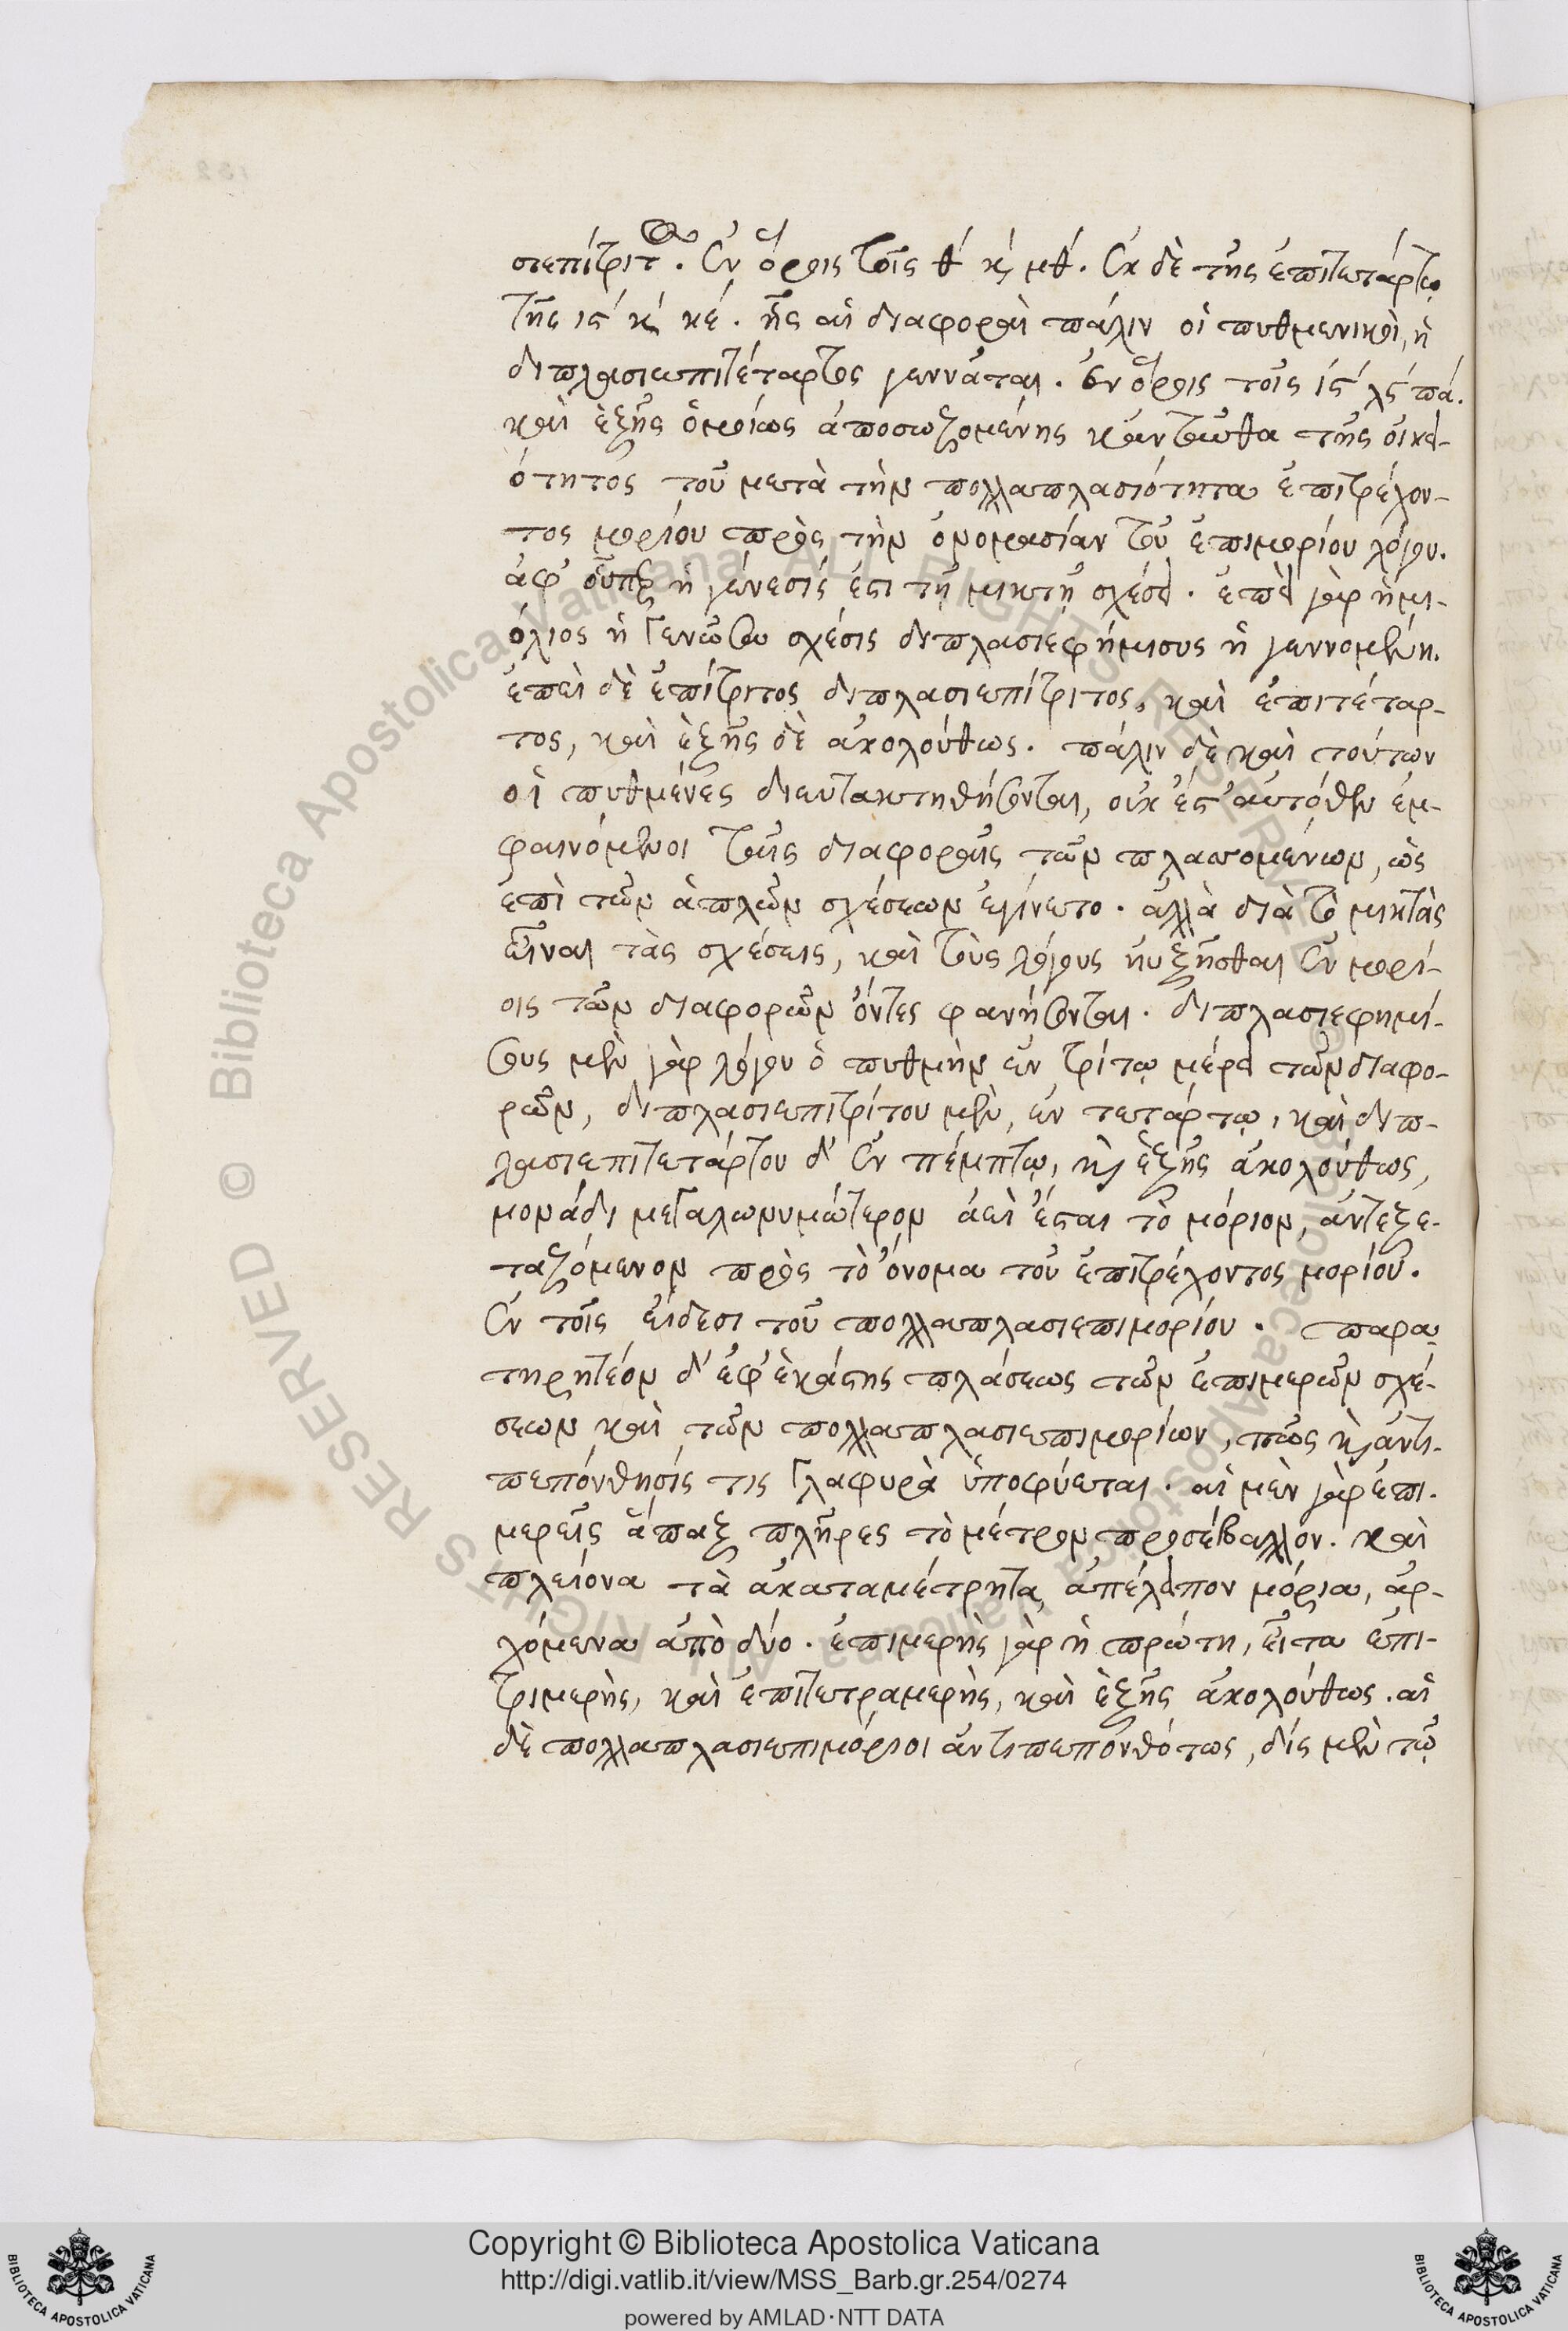 σιεπίτριτος. ἐν ὅροις τοῖς θ κ̀ μθ. ἐκ δὲ τῆς ἐπιτετάρτου
τῆς ις κ κε. ἧς αἱ διαφοραὶ πάλιν οἱ πυθμενικοὶ, ἡ
διπλασιεπιτέταρτος γεννᾶται. ἐν ὅροις τοῖς ις λς πα.
καὶ ἑξῆς ὁμοίως ἀποσωζομένης κἀνταῦθα τῆς οἰκει-
ότητος τοῦ μετὰ τὴν πολλαπλασιότητα ἐπιτρέχον-
τος μορίου πρὸς τὴν ὀνομασίαν τοῦ ἐπιμορίου λόγου.
ἀφ' οὗπερ ἡ γένεσίς ἐστι τῇ μικτῇ σχέσει. ἐπεὶ γὰρ ἡμι-
όλιος ἡ γεννῶσα σχέσις διπλασιεφήμισυς ἡ γεννομένη.
ἐπεὶ δὲ ἐπίτριτος διπλασιεπίτριτος, καὶ ἐπιτέταρ-
τος, καὶ ἑξῆς δὲ ἀκολούθως. πάλιν δὲ καὶ τούτων
οἱ πυθμένες διευτακτηθήσονται, οὐκ ἐς αὐτόθεν ἐμ-
φαινόμενοι ταῖς διαφοραῖς τῶν πλασσομένων, ὡς
ἐπὶ τῶν ἁπλῶν σχέσεων ἐγίνετο. ἀλλὰ διὰ τὸ μικτὰς
εἶναι τὰς σχέσεις, καὶ τοὺς λόγους ηὐξῆσθαι ἐν μορί-
οις τῶν διαφορῶν ὄντες φανήσονται. διπλασιεφημί-
σους μὲν γὰρ λόγου ὁ πυθμὴν ἐν τρίτῳ μέρει τῶν διαφο-
ρῶν, διπλασιεπιτρίτου μὲν, ἐν τετάρτῳ, καὶ διπ-
λασιεπιτετάρτου δ' ἐν πέμπτῳ, κ̀ ἑξῆς ἀκολούθως,
μονάδι μεγαλωνυμώτερον ἀεὶ ἔσται τὸ μόριον, ἀντεξε-
ταζόμενον πρὸς τὸ ὄνομα τοῦ ἐπιτρέχοντος μορίου.
ἐν τοῖς εἴδεσι τοῦ πολλαπλασιεπιμορίου. παρα
τηρητέον δ' ἐφ' ἑκάστης πλάσεως τῶν ἐπιμερῶν σχέ-
σεων καὶ τῶν πολλαπλασιεπιμορίων, πῶς κ̀ ἀντι-
πεπόνθησίς τις γλαφυρὰ ὑποφύεται. αἱ μὲν γὰρ ἐπι-
μερεῖς ἅπαξ πλῆρες τὸ μέτρον προσέβαλλον. καὶ
πλείονα τὰ ἀκαταμέτρητα ἀπέλειπον μόρια, ἀρ-
χόμενα ἀπὸ δύο. ἐπιμερὴς γὰρ ἡ πρώτη, εἶτα ἐπι-
τριμερὴς, καὶ ἐπιτετραμερὴς, καὶ ἑξῆς ἀκολούθως. αἱ
δὲ πολλαπλασιεπιμόριοι ἀντιπεπονθότως, δὶς μὲν τῷ
Copyright © Biblioteca Apostolica Vaticana
http://digi.vatlib.it/view/MSS_Barb.gr.254/0274
powered by AMLAD·NTT DATA
BIBLIOTECA APOSTOLICA VATICANA
BIBLIOTECA APOSTOLICA VATICANA